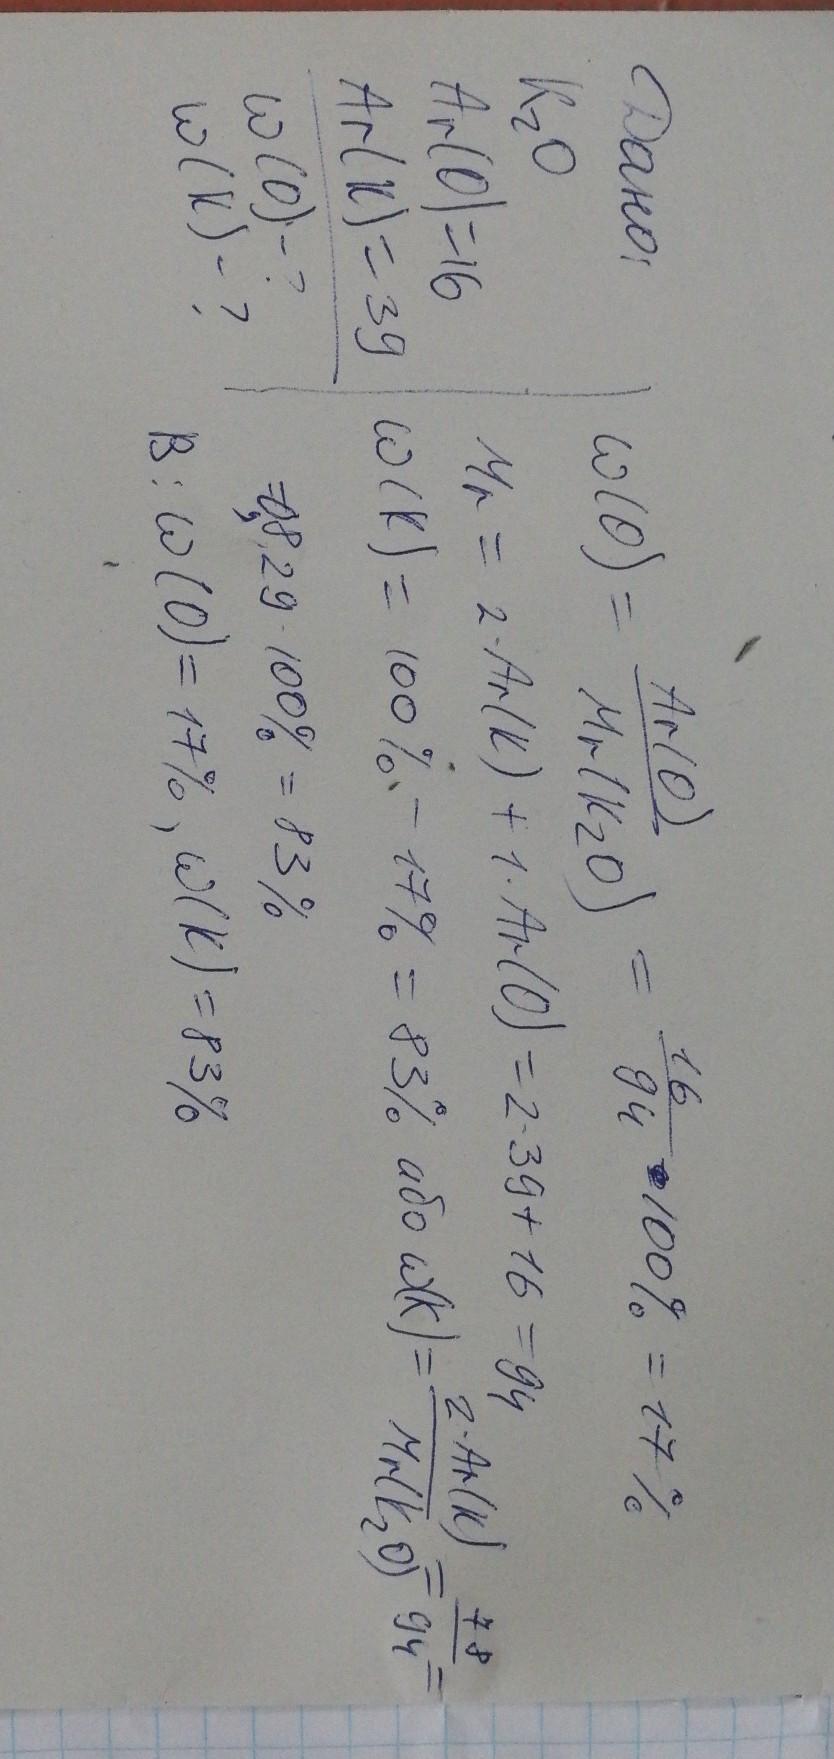 Дано:
K₂O
Ar(O)=16
Ar(K)=39
w(O)-?
w(K)-?
w(O) = Ar(O)/Mr(K₂O) = 16/94 · 100% = 17%
Mr = 2·Ar(K) + 1·Ar(O) = 2·39 + 16 = 94
w(K) = 100% - 17% = 83% або w(K) = 2·Ar(K)/Mr(K₂O) = 78/94 =
=0,829·100% = 83%
В: w(O) = 17%, w(K) = 83%